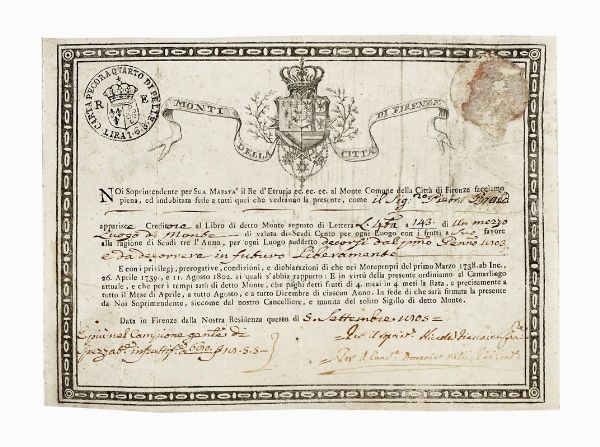 CARTA PECORA QUARTO DI PELLE
LIRA 1.6.8.
R E
MONTI
DELLA CITTÀ
DI FIRENZE
NOi Soprintendente per SUA MAESTA' il Re d'Etruria ec. ec. ec. al Monte Comune della Città di Firenze facciamo
piena, ed indubitata fede a tutti quei che vedranno la presente, come il Sig.
apparisce Creditore al Libro di detto Monte segnato di Lettera a 143. di Un mezzo
Luogo di Monte di valuta di Scudi Cento per ogni Luogo con i frutti a suo favore
alla ragione di Scudi tre l'Anno, per ogni Luogo suddetto decorsi dal primo Genn.o 1803,
e da decorrere in futuro Liberamente
E con i privilegj, prerogative, condizioni, e dichiarazioni di che nei Motuproprj del primo Marzo 1738. ab Inc.,
26. Aprile 1739., e 11. Agosto 1802. ai quali s'abbia rapporto: E in virtù della presente ordiniamo al Camarlingo
attuale, e che per i tempi sarà di detto Monte, che paghi detti frutti di 4. mesi in 4. mesi la Rata, e precisamente a
tutto il Mese di Aprile, a tutto Agosto, e a tutto Dicembre di ciascun Anno. In fede di che sarà firmata la presente
da Noi Soprintendente, siccome dal nostro Cancelliere, e munita del solito Sigillo di detto Monte.
Data in Firenze dalla Nostra Residenza questo dì 5. Settembre 1803
E più nel Campione
Per il Nicolò
Per il Canc.e Domenico